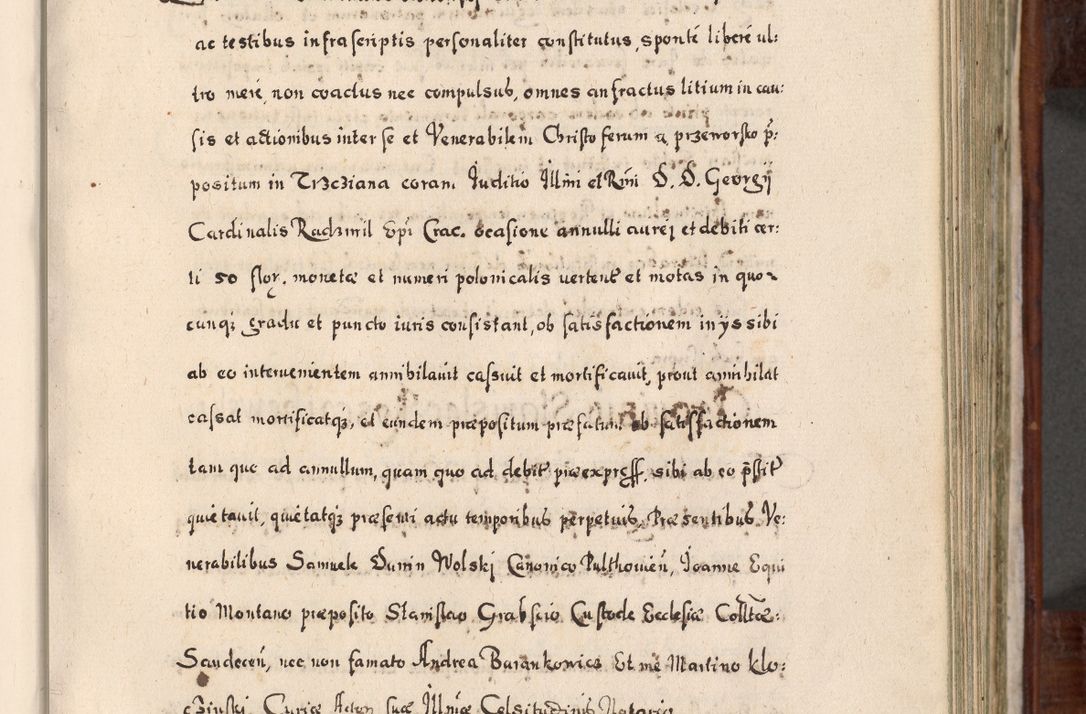 ac testibus infrascriptis personaliter constitutus, sponté liberé ul:
tro meré, non coactus nec compulsus, omnes anfractus litium in cau:
sis et actionibus inter se et Venerabilem Christoferum a przeworsko p̄:
positum in Trzcziana coram Juditio Illmi et Rmi D. D. Georgij
Cardinalis Radziwil Epi Crac. ocasione annulli aurej et debiti cer:
ti 50 flor. monetæ et numeri polonicalis vertent et motas in quo-
cunqз gradu et puncto iuris consistant, ob satisfactionem in ijs sibi
ab eo interuenientem annihilauit cassuit et mortificauit, prout annihilat
cassat mortificatqз, et eundem præpositum præfatum ob satisfactionem
tam quo ad annullum, quam quo ad debit præexpress. sibi ab eo p̄stit
quietauit, quietatqз præsenti actu temporibus perpetuis, Præsentibus Ve:
nerabilibus Samuele Dunin Wolskj Canonico Pulthouien, Joanne Equi
tio Montano præposito Stanislao Grabscio Custode Ecclesiæ Colltæ:
Sandecen, nec non famato Andrea Burankowics Et me Martino klo:
czinskj Curiæ Acton suæ Illmæ Celsitudinis Notario